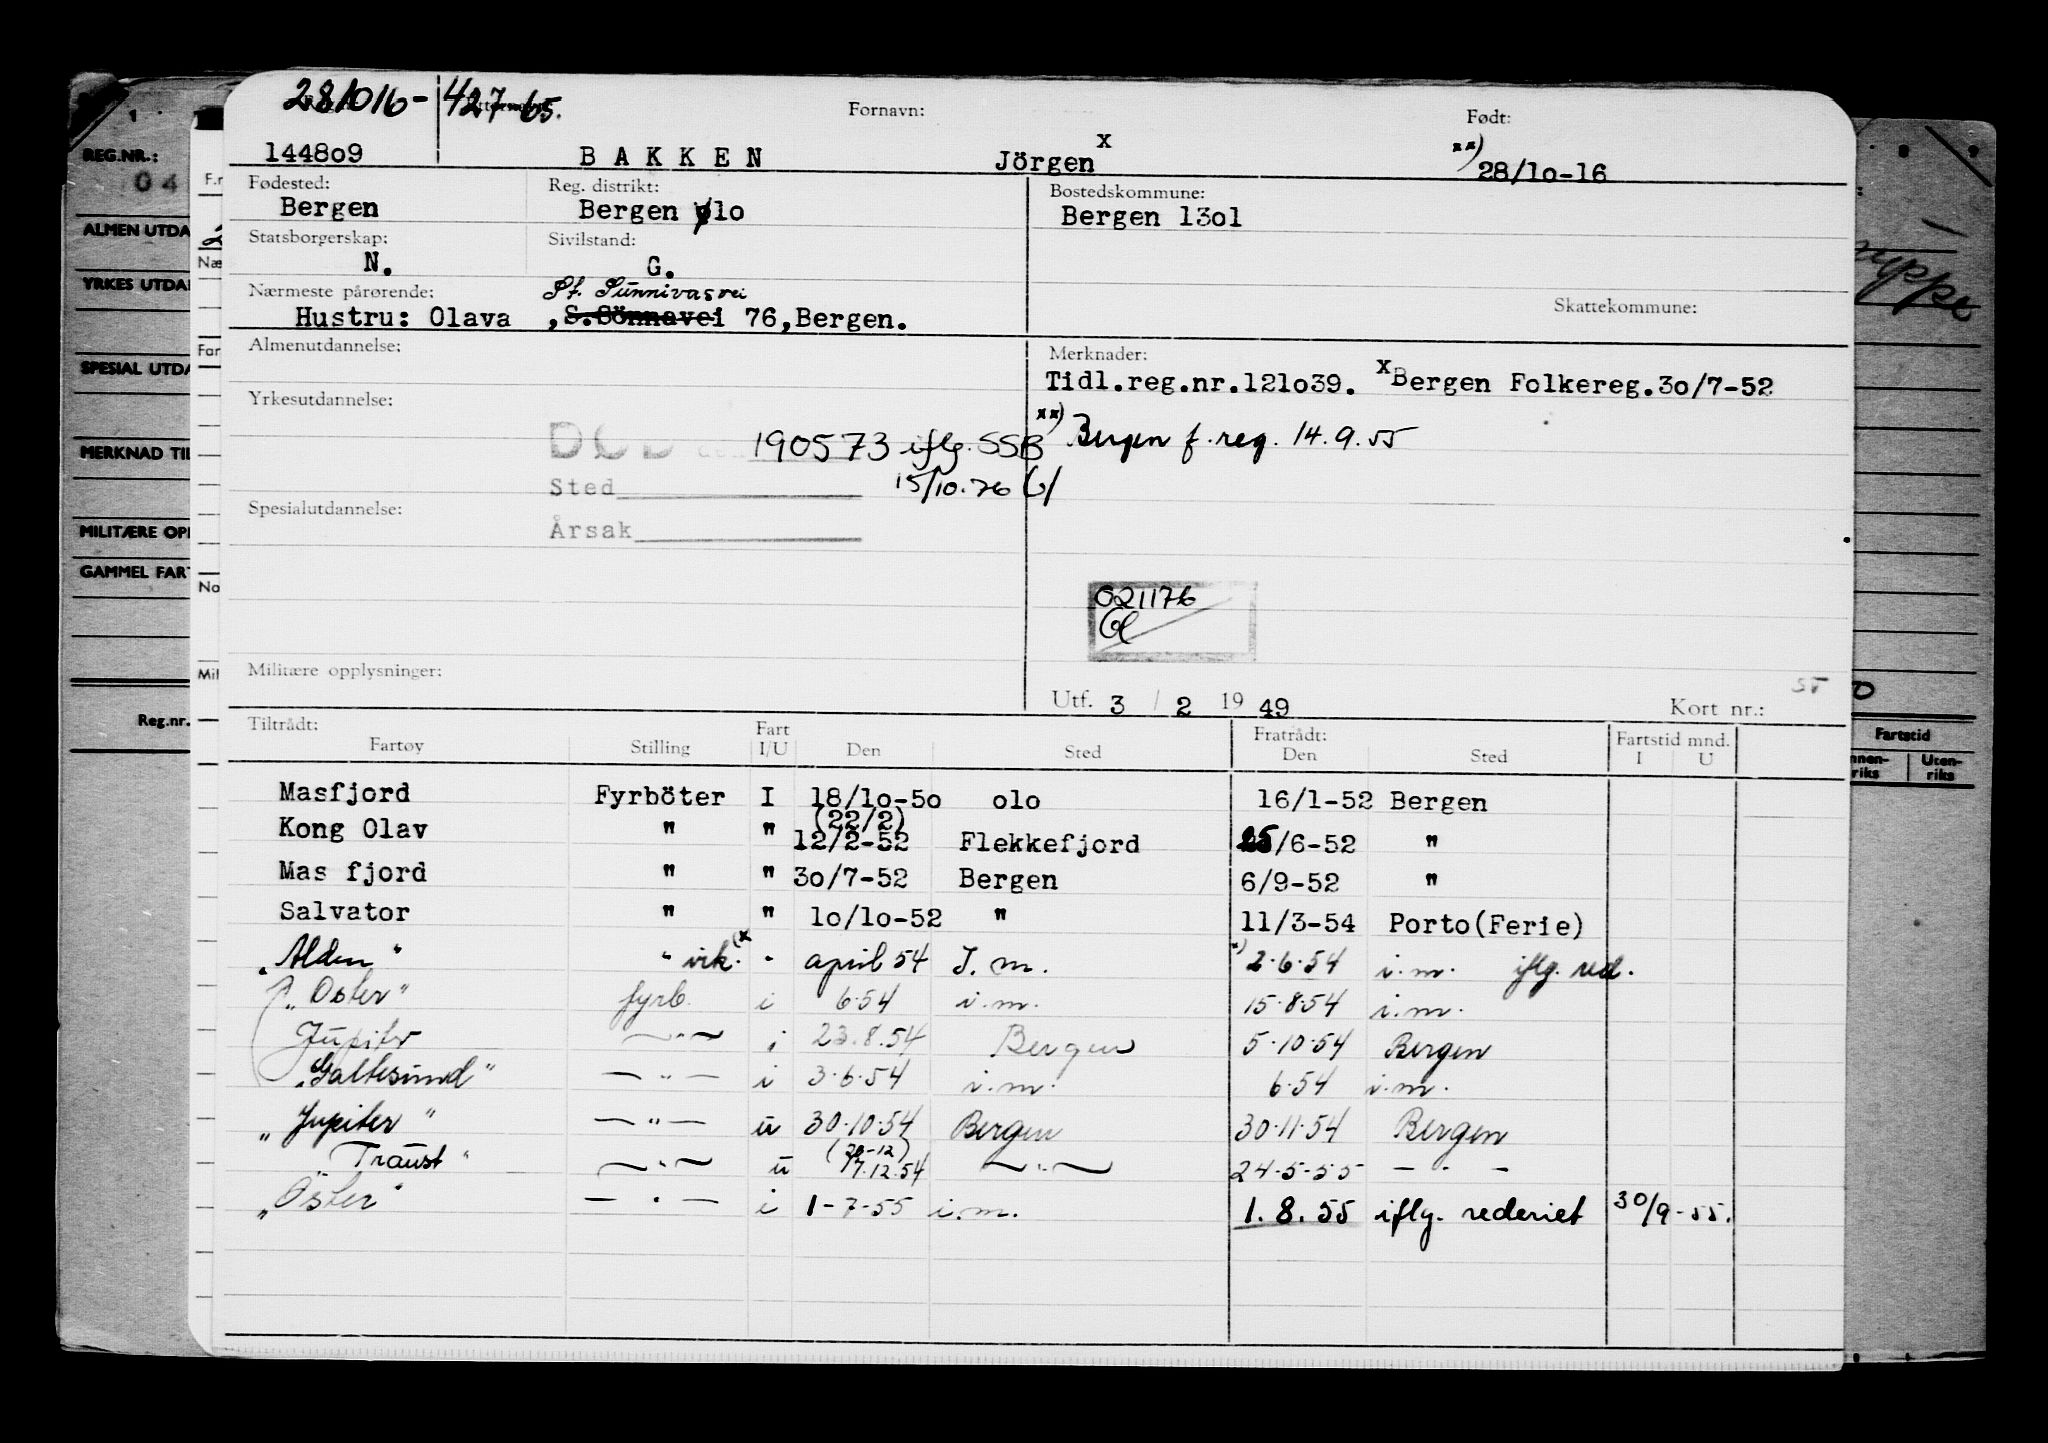 281016-42765.
Fornavn:
Født:
144809
B A K K E N
Jörgen x
xx) 28/10-16
Fødested:
Bergen
Reg. distrikt:
Bergen olo
Bostedskommune:
Bergen 13ol
Statsborgerskap:
N.
Sivilstand:
G.
Nærmeste pårørende:
St. Sunnivasvei
Hustru: Olava , S.Sönnavei 76,Bergen.
Skattekommune:
Almenutdannelse:
Merknader:
Tidl.reg.nr.121o39. xBergen Folkereg.3o/7-52
Yrkesutdannelse:
xx) Bergen f.reg. 14.9.55
DØD den 190573 iflg. SSB
Sted 15/10.76
Spesialutdannelse:
Årsak
021176
Militære opplysninger:
Utf. 3 / 2 19 49
Kort nr.:
Tiltrådt:
Fartøy Stilling Fart I/U Den Sted
Fratrådt:
Den Sted
Fartstid mnd.
I U
Masfjord Fyrböter I 18/lo-5o olo 16/1-52 Bergen
(22/2)
Kong Olav " " 12/2-52 Flekkefjord 25/6-52 "
Mas fjord " " 3o/7-52 Bergen 6/9-52 "
Salvator " " lo/lo-52 " 11/3-54 Porto(Ferie)
"Alden" " vik. (x " april 54 I.m. x) 2.6.54 i.m. iflg. red.
"Oster" fyrb. i 6.54 i.m. 15.8.54 i.m.
Jupiter " i 23.8.54 Bergen 5.10.54 Bergen
"Galtesund" " i 3.6.54 i.m. 6.54 i.m.
"Jupiter" " u 30.10.54 Bergen 30.11.54 Bergen
(20-12)
"Traust" " u 17.12.54 " 24.5.55 "
"Oster" " i 1-7-55 i.m. 1.8.55 iflg. rederiet 30/9-55.
REG.NR.:
04
ALMEN UTDA
YRKES UTDA
SPESIAL UTDA
MERKNAD TI
MILITÆRE OP
GAMMEL FAR
Reg.nr.
F.
Næ
Far
No
Mil
Fartstid
nnen-
riks
Uten-
riks